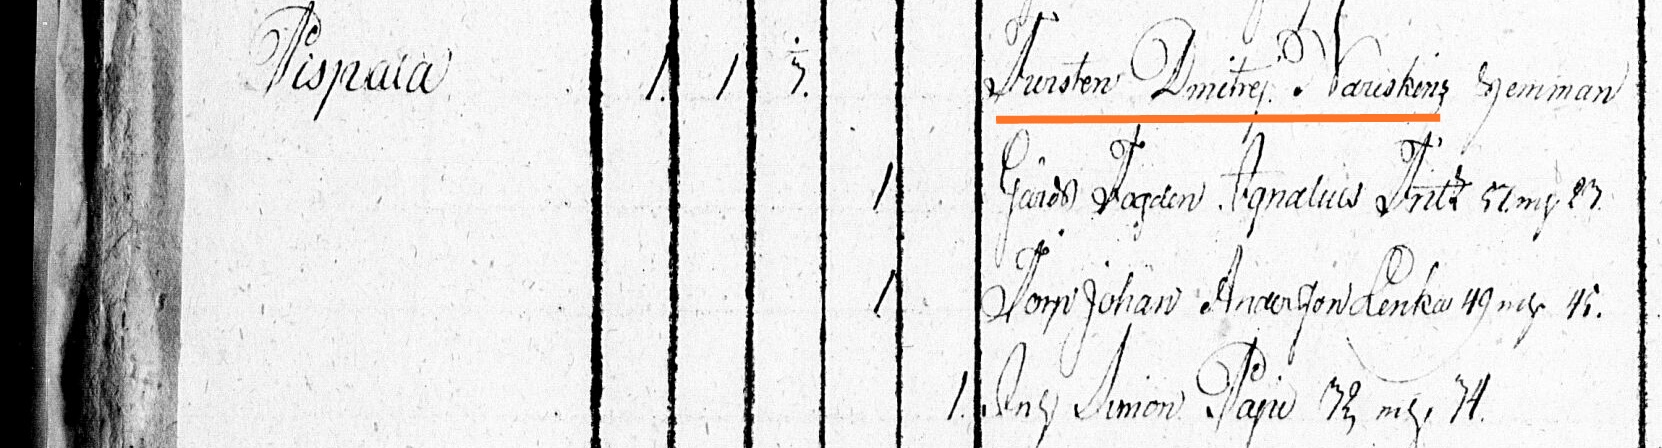 Pispala 1. 1 3. Fursten Dmitrej Nariskins Hemman
1 Gårds Fogden Ignatius Fritz 57. my 23.
1 Torp Johan Andersson Lenka 49 my 45.
1. Inh Simon Paju 72 my. 74.